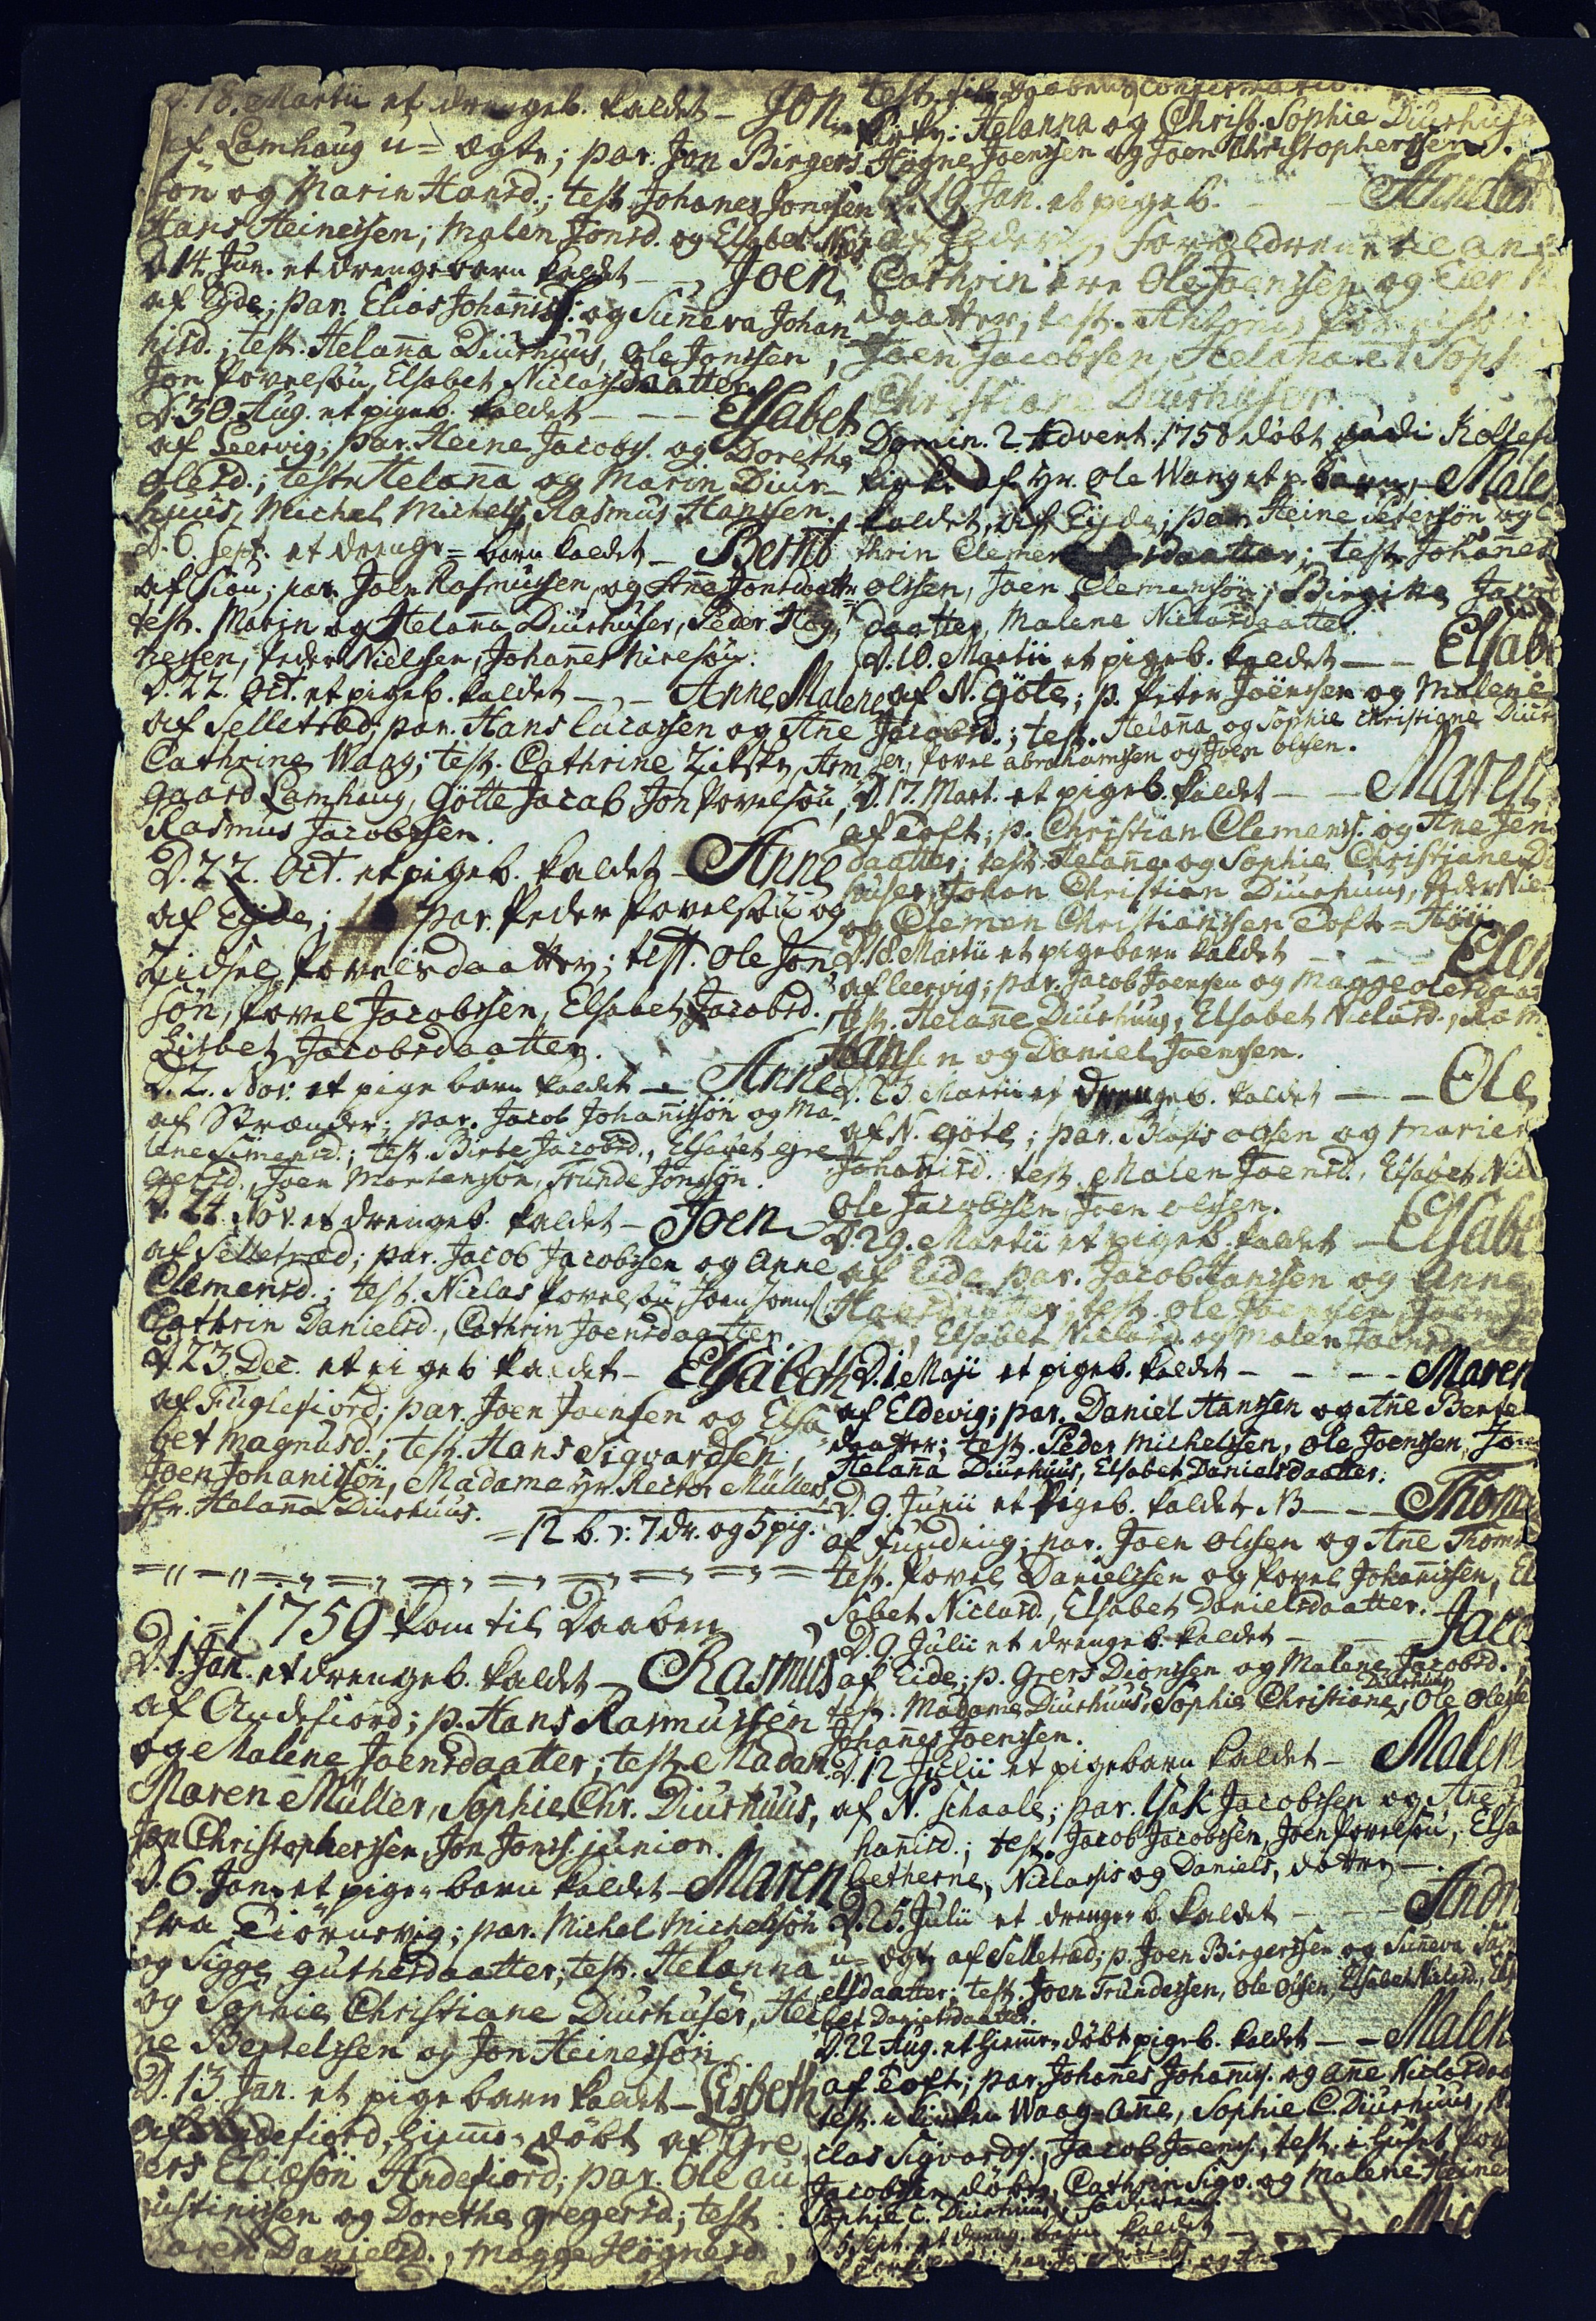 D. 18. Martii et drengeb. kaldet – Jon
af Lamhaug u=ægte; par. Jan Birgers
søn og Marin Hansd.; test. Johanes Jonssen
Hans Heinessen; Malen Jonsd. og Elsabet
D. 14. Jun. et drengebarn kaldet – Joen
af Eyde; par. Elias Johaniss: og Suñeva Johan
nisd.; test. Helaña Diurhuus, Ole Jonssen,
Jon Povelsøn, Elsabet Niclasdaatter.
D. 30. Aug. et pigeb. kaldet – – – Elsabet
af Leervig; par. Heine Jacobs. og Dorethe
Olesd.; test. Helaña og Marin Diur-
huus, Michel Michels, Rasmus Hanssen.
D. 6. Sept. et drenge=barn kaldet – Bernt
par. Joen Rasmussen, og Añe Jonsdaatter
test. Marin og Helaña Diurhuser, Peder Høg-
nessen, Peder Nielssen, Johañes
D. 22. Oct. et pigeb. kaldet – – Anne Malene
af Selletræd; par. Hans Lucassen og Añe
Cathrine Waag; test. Cathrine Arm
gaard Lamhaug, Gøtte Jacob, Jon Povelsøn,
Rasmus Jacobssen.
D. 22. Oct. et pigeb. kaldet – Anne
af Eyde; par. Peder Povelsøn og
Zidsel Povelsdaatter; test. Ole Jon
søn, Povel Jacobssen, Elsabet Jacobsd.
Lisbet Jacobsdaatter.
D. 2. Nov. et pigebarn kaldet – Anne
af Strænder; par. Jacob Johanissøn og Ma-
lene Simensd.; test. Birte Jacobsd., Elsabet Gre
gersd., Joen Mortensøn, Trunde Jonsøn.
D. 24. Nov. et drengeb. kaldet – Joen
af Selletræd; par. Jacob Jacobssen og Anne
Clemensd.; test. Niclas Povelsøn, Joen Joens
Cathrin Danielsd., Cathrin Joensdaatter.
D. 23. Dec. et pigeb. kaldet – Elsabeth
af Fuglefiord; par. Joen Joensen og Elsa
bet Magnusd.; test. Hans Sigvardsen,
Joen Johanissøn, Madame Hr. Rector Müllers,
Jfr. Helaña Diurhuus.
= 12 b. ɔ: 7 dr. og 5 pig.
= 1759 kom til Daaben
D. 1. Jan. et drengeb. kaldet – Rasmus
af Andefiord; p. Hans Rasmussen
og Malene Joensdaatter; test. Madam
Maren Müller, Sophie Chr. Diurhuus,
Jon Christopherssen, Jon Jonss. junior.
D. 6. Jan. et pige=barn kaldet – Maren
fra Tiørnevig; par. Michel Michelssøn
og Sigge Guthesdaatter; test. Helanna
og Sophie Christiane Diurhuser, Hei
ne Bertelssen og Jon Heinessøn.
D. 13. Jan. et pigebarn kaldet – Lisbeth
af Andefiord, hieme=døbt af Gre
gers Eliesøn Andefiord; par. Ole Au
gustinissen og Dorethe Gregersd.; test:
Maren Danielsd., Magge Høgnesd.,
test. til Daabens Confirmation
Helanna og Christ. Sophie Diurhuser
Høgne Joenssen og Joen Christopherssen.
D. 19. Jan. et pigeb. – – Anne
forældrene til Anne
Cathrin ere Ole Joenssen og
daatter, test.
Joen Jacobssen, Helana et Soph
Christiane Diurhuser.
Domin. 2. Advent. 1758 døbt
kirke af Hr. Ole Wang et p. barn, Male
kaldet, af Eyde; par. Heine Peterssøn og C
thrin Clemensdaatter; test. Johanes
Olssen, Joen Clemensøn, Birgitte Jacobs
daatter, Malene Niclasdaatter.
D. 10. Martii et pigeb. kaldet – – Elsabe
af N. Gøte; p. Peter Joenssen og Malene
Jacobsd.; test. Helaña og Sophie Christiane Diur
ser, Povel Abrahamssen og Joen Olssen.
D. 17. Mart. et pigeb. kaldet – – Maren
af Toft; p. Christian Clemens. og Ane Jens
daatter; test. Helane og Sophie Christiane Di
huser, Johan Christian Diurhuus, Peder Nie
og Clemen Christianssen Toft=
D. 18. Martii et pigebarn kaldet – – – Elen
af Leervig; par. Jacob Joensen og Magge Olesdaat
test. Helane Diurhuus, Elsabet Niclasd., Rasm.
Hansen og Daniel Joenssen.
D. 25. Martii et drengeb. kaldet – – Ole
af N. Gøte; par. Blasis Olsen og Marie
Johanisd. test. Malen Joensd., Elsabet Nicl
Ole Jacobssen, Joen Olssen.
D. 29. Martii et pigeb. kaldet – Elsabe
af Eide par. Jacob Hanssen og Anne
Hansdaatter; test. Ole Joenssen,
Elsabet Niclasd. og Malen Joensdaatter
D. 1 Maji et pigeb. kaldet – – – – Maren
af Eldevig; par. Daniel Hanssen og Añe Bertel
daatter; test. Peder Michelssen, Ole Joenssen,
Helaña Diurhuus, Elsabet Danielsdaatter.
D. 9. Junii et Pigeb. kaldet NB – – – Thom
af Funding; par. Joen Olssen og Añe Thoms
test. Povel Danielssen og Povel Johanissen, El
sabet Niclasd., Elsabet Danielsdaatter.
D. 9. Julii et drengeb. kaldet – – Jaco
af Eide; p. Grers Dionissen og Malene Jacobsd.
test. Madame Diurhuus, Sophie Christiane Diurhuus, Ole Olesse
Johañes Joenssen.
D. 12 Julii et pigebarn kaldet – Malen
af N. Schaale; par. Isak Jacobssen og Ane Jo
hanisd.; test. Jacob Jacobssen, Joen Povelsøn, Elsa
betherne, Niclassis og Daniels, døttre –.
D. 25. Julii et drenge b. kaldet – – – Andr
u=ægte af Selletræd; p. Joen Birgerssen og Suneva Sam
elsdaatter; test. Joen Trundessen, Ole Olssen, Elsabet Niclasd., Els
bet Danielsdaatter.
D. 22 Aug. et hieme=døbt pigeb. kaldet – – Malen
af Toft; par. Johañes Johanis. og Añe Niclasdaa
test. i kirken Waag=Añe, Sophie C. Diurhuus,
clas Sigvards., Jacob Joens., test. i huset Pov
Jacobssen døbte, Cathrin Sigv. og Malene Heine
Sophie C. Diurhuus
D. 5 Sept. et dreng=barn kaldet – – Mic